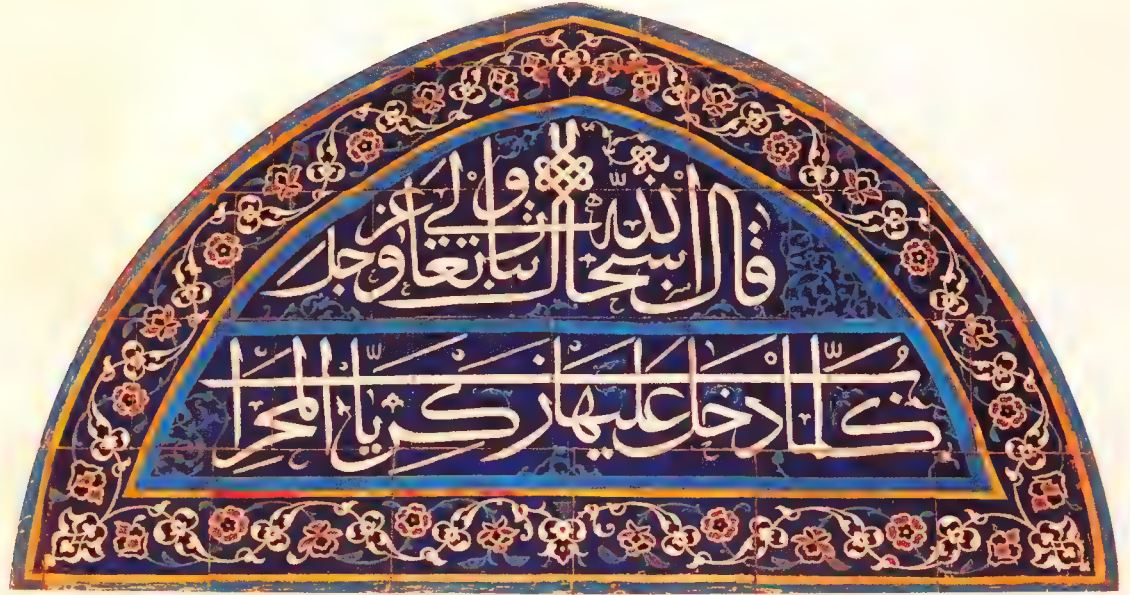 قال الله سبحانه تبارك وتعالى عز وجل
كلما دخل عليها زكريا المحراب